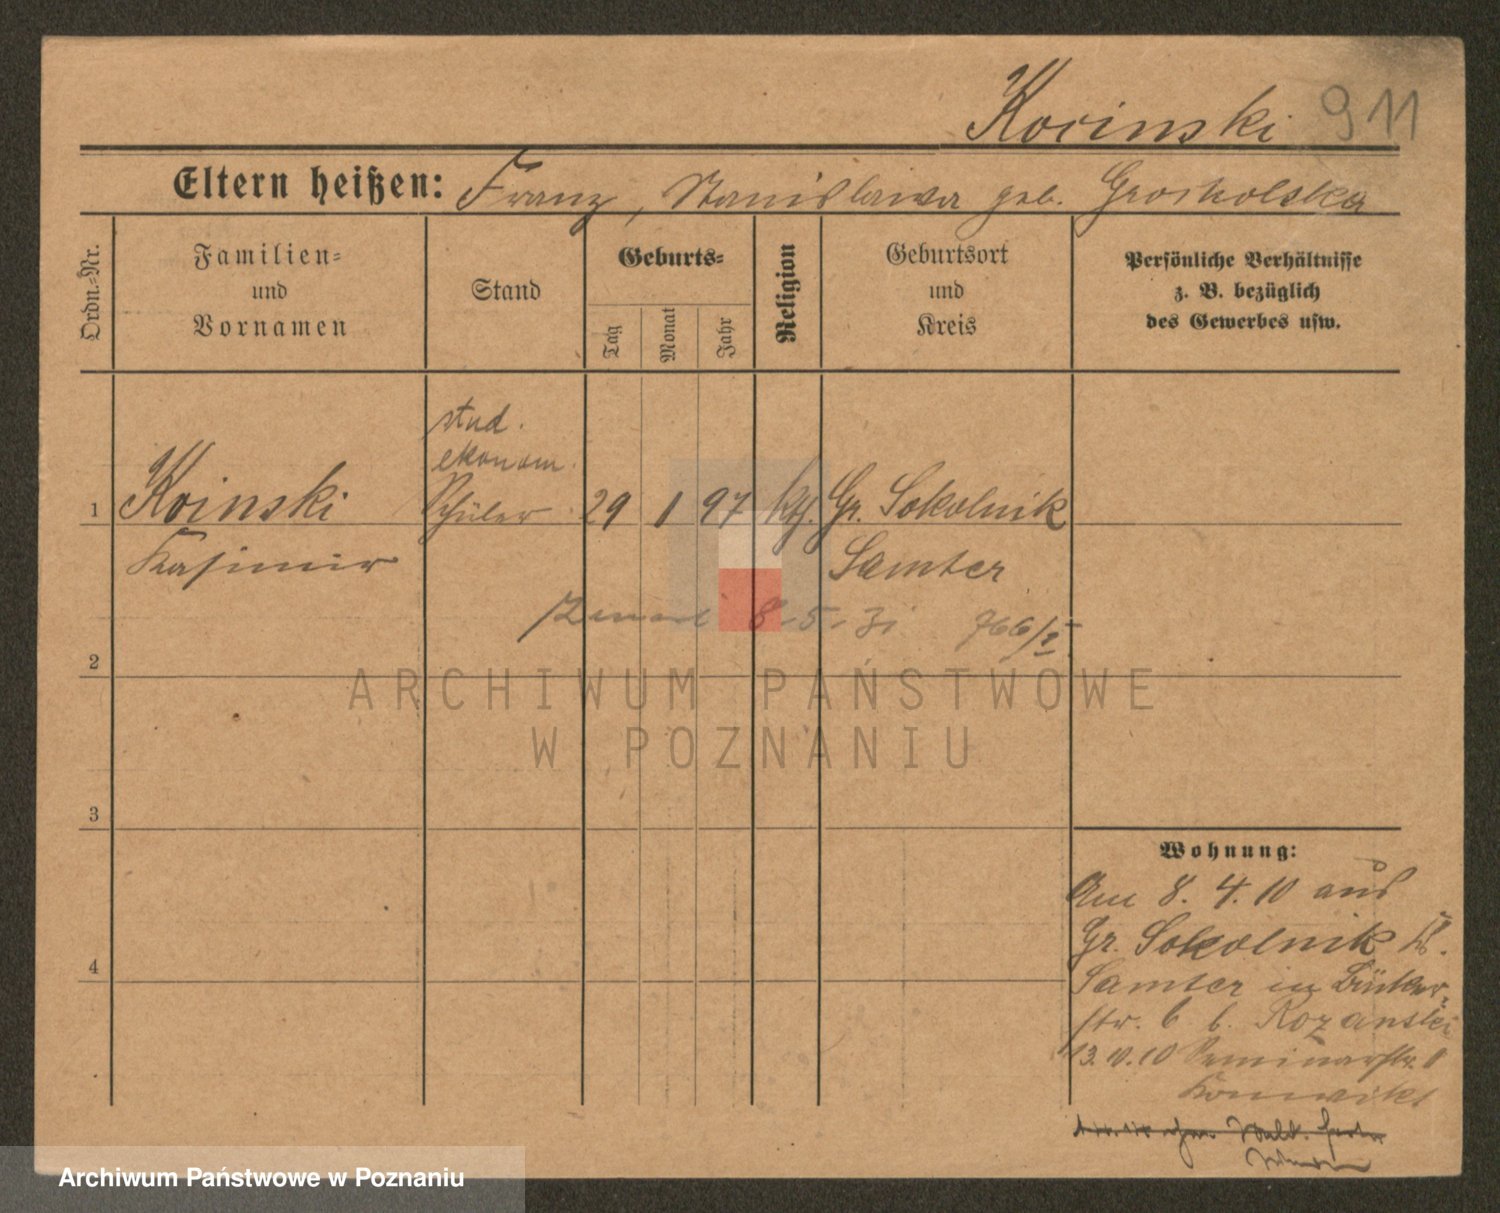 Kocinski 911
Eltern heißen: Franz, Stanislawa geb. Groskolska
Ordn.-Nr.
Familien-
und
Vornamen
Stand
Geburts-
Tag
Monat
Jahr
Religion
Geburtsort
und
Kreis
Persönliche Verhältnisse
z. B. bezüglich
des Gewerbes usw.
stud.
ekonom.
1 Koinski Schüler 29 1 97 kth. Gr. Sokolnik
Kasimir Samter
8.5.31 766/I
2
ARCHIWUM PAŃSTWOWE
W POZNANIU
3
Wohnung:
Am 8. 4. 10 aus
Gr. Sokolnik Kr.
4
Samter in Bäcker-
str. 6 b. Rozanski
13.10.10 Seminarstr. 1
Konvikt
Archiwum Państwowe w Poznaniu